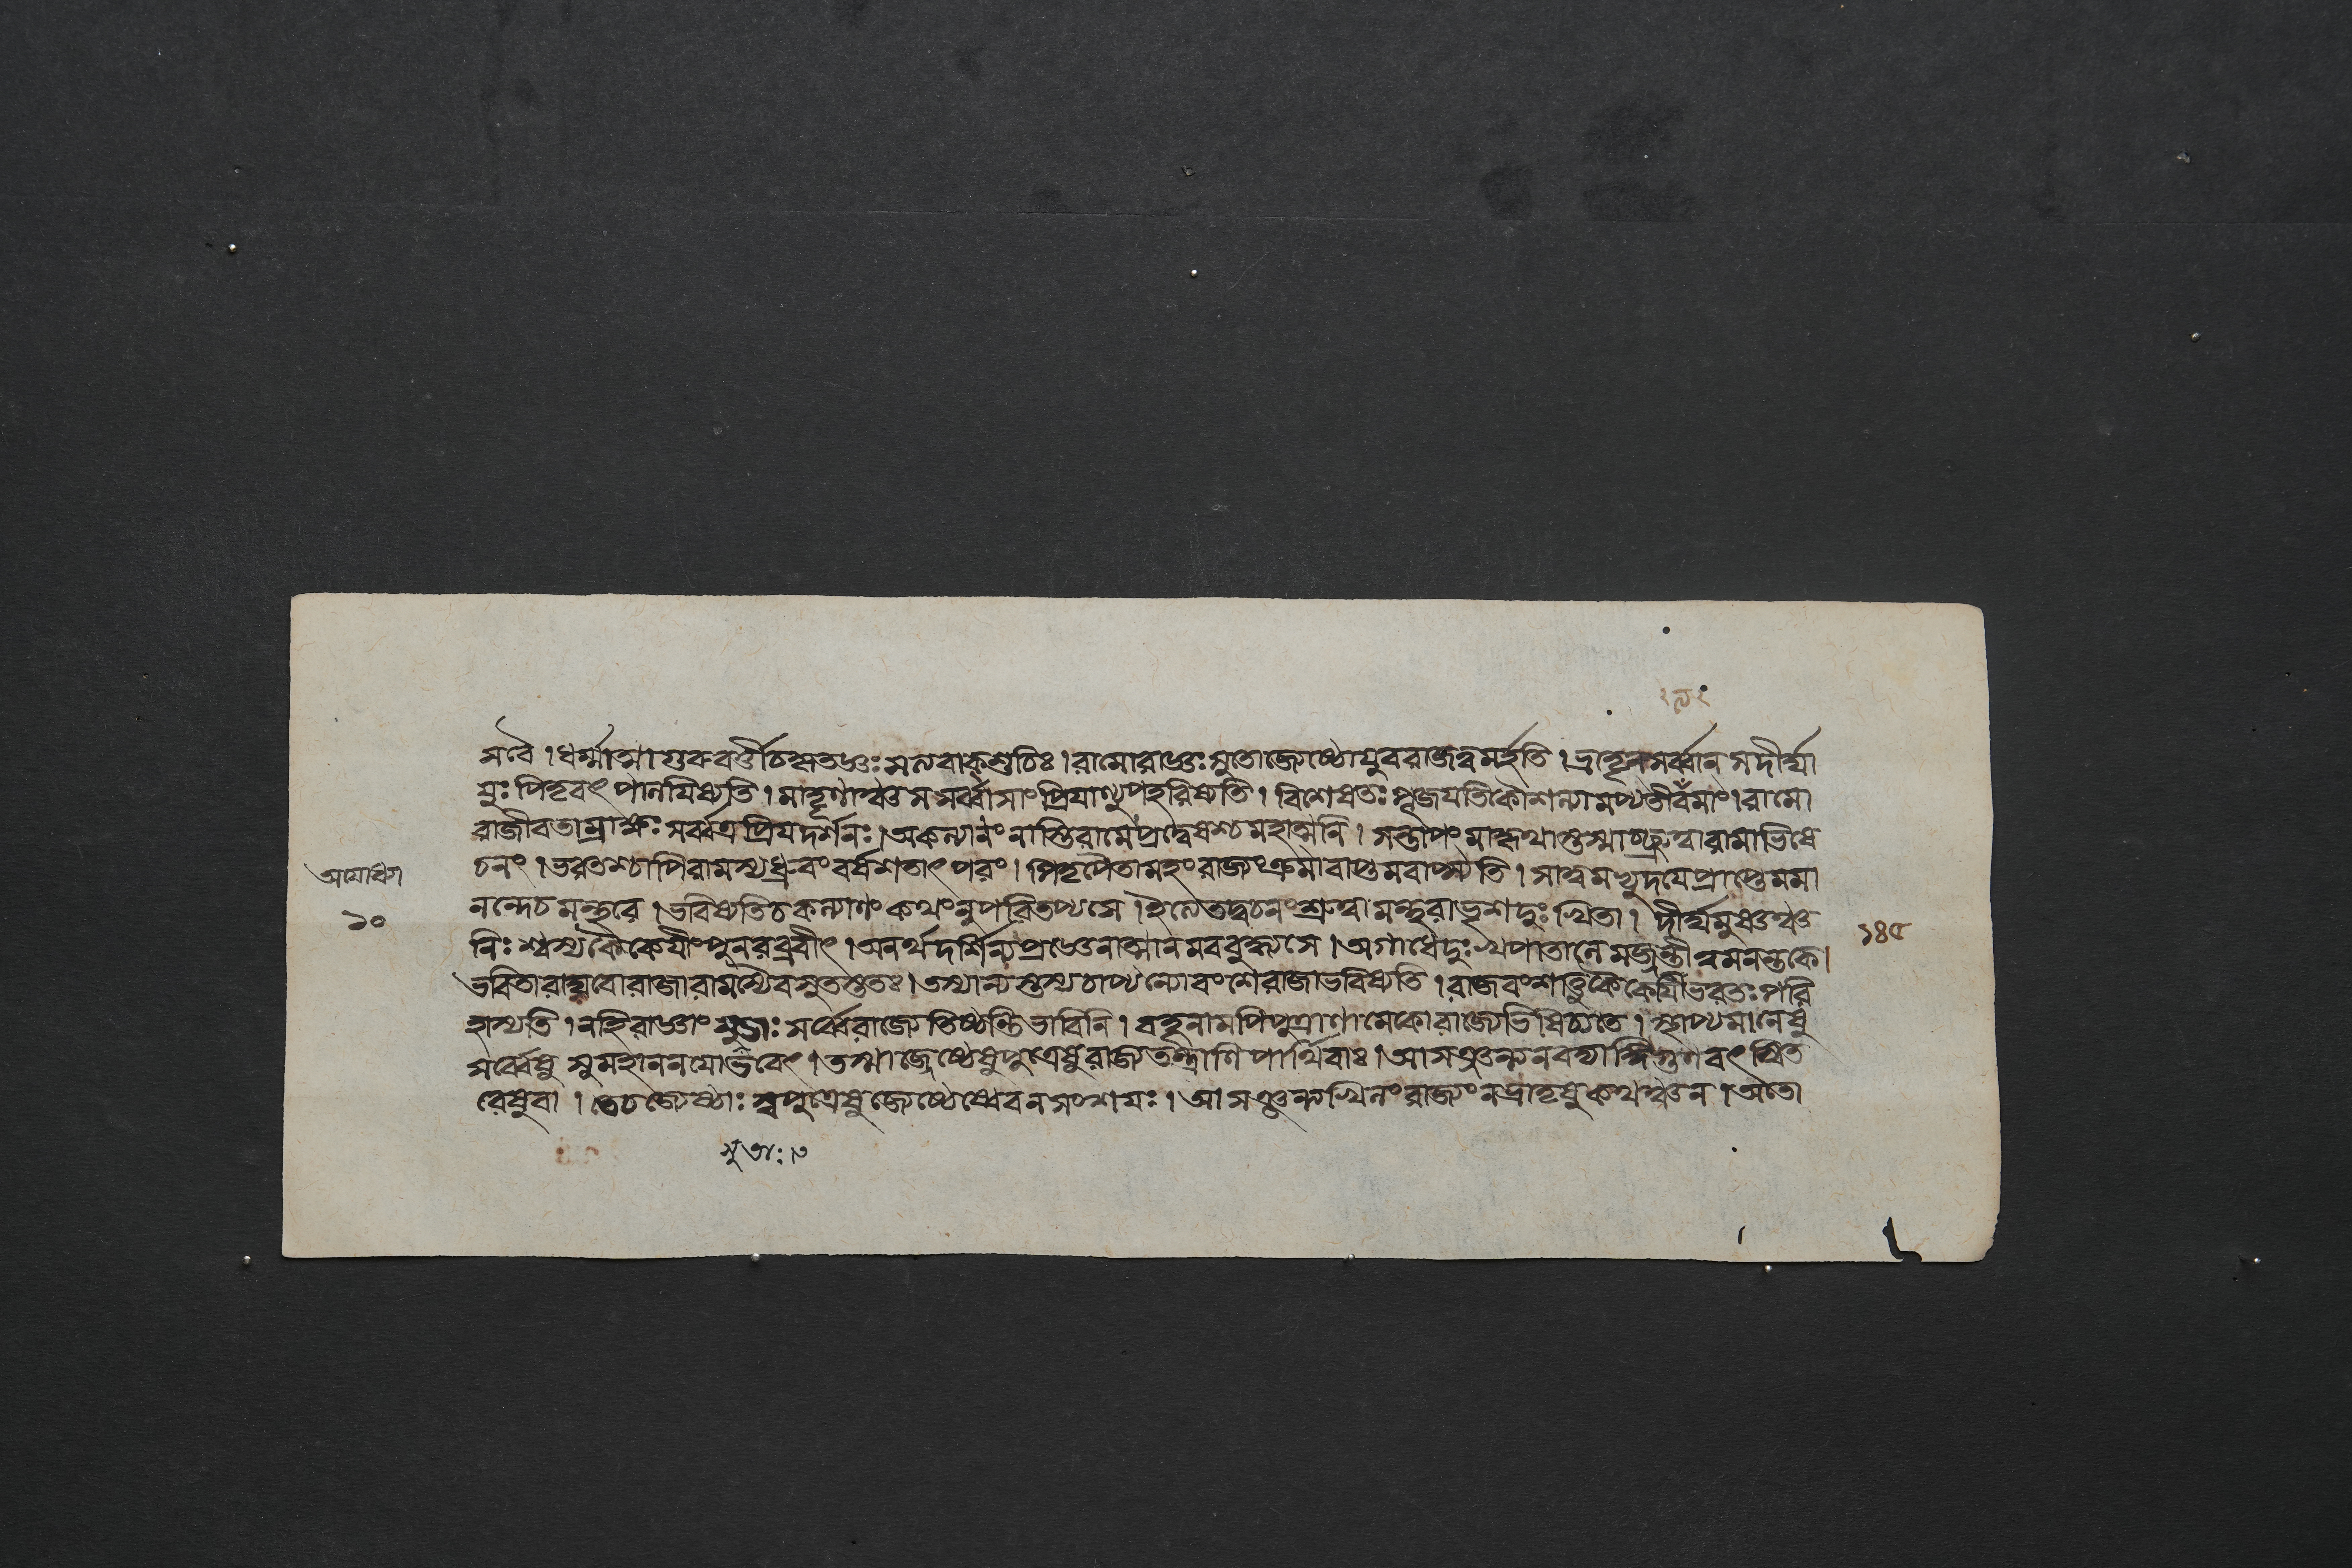 সবৈ।ধর্ম্মাত্মাগুরুবর্ত্তীচকৃতজ্ঞঃসত্যবাক্শুচিঃ।রামোরাজ্ঞঃসুতোজ্যেষ্ঠোযুবরাজত্বমর্হতি।ভ্রাতৄন্সর্ব্বান্সদীর্ঘা
যুঃপিতৃবৎপালযিষ্যতি।মাতৄণাঞ্চসসর্ব্বাসাংপ্রিযাণ্যুপহরিষ্যতি।বিশেষতঃপূজযতিকৌশল্যামপ্যতীবমাং।রামো
রাজীবতাম্রাক্ষঃসর্ব্বত্রপ্রিযদর্শনঃ।অকল্যানংনাস্তিরামেপ্রদ্বেষশ্চমহাত্মনি।সন্তাপংমাকৃথাস্তস্মাচ্ছ্রুত্বারামাভিষে
চনং।ভরতশ্চাপিরামস্যধ্রুবংবর্ষশতাৎপরং।পিতৃপৈতামহংরাজ্যংক্রমাবাপ্তমবাপ্স্যতি।সাত্বমভ্যুদযেপ্রাপ্তেমমা
নন্দেচমন্থরে।ভবিষ্যতিচকল্যাণংকথংনুপরিতপ্যসে।ইত্যেতদ্বচনংশ্রুত্বামন্থরাভৃশদুঃখিতা।দীর্ঘমুষ্ণঞ্চ
নিঃশ্বস্যকৈকেযীংপুনরব্রবীৎ।অনর্থদর্শিন্যপ্রজ্ঞেনাত্মানমববুধ্যসে।অগাধেদুঃখপাতালেমজ্জন্তীত্বমনন্তকে।
ভবিতারাঘবোরাজারামস্যৈবসুতস্ততঃ।তস্যান্যস্তস্যচাপ্যন্যোবংশেরাজাভবিষ্যতি।রাজবংশাত্তুকৈকেযিভরতঃপরি
হাস্যতি।নহিরাজ্ঞাংসুতাঃসর্ব্বেরাজ্যেতিষ্ঠন্তিভাবিনি।বহূনামপিপুত্রাণামেকোরাজ্যেভিষিচ্যতে।স্থাপ্যমানেষু
সর্ব্বেষুসুমহাননযোভবেৎ।তস্মাজ্জ্যেষ্ঠেষুপুত্রেষুরাজ্যতন্ত্রাণিপার্থিবাঃ।আসজ্যন্ত্যনবদ্যাঙ্গিগুণবৎস্বিত
রেষুবা।তেচজ্যেষ্ঠাঃস্বপুত্রেষুজ্যেষ্ঠেষ্বেবনসংশযঃ।আসজ্যন্ত্যখিলংরাজ্যংনভ্রাতৃষুকথঞ্চন।অতো
অযোধ্যা
১০
১৪৫
সুতাঃ।৮